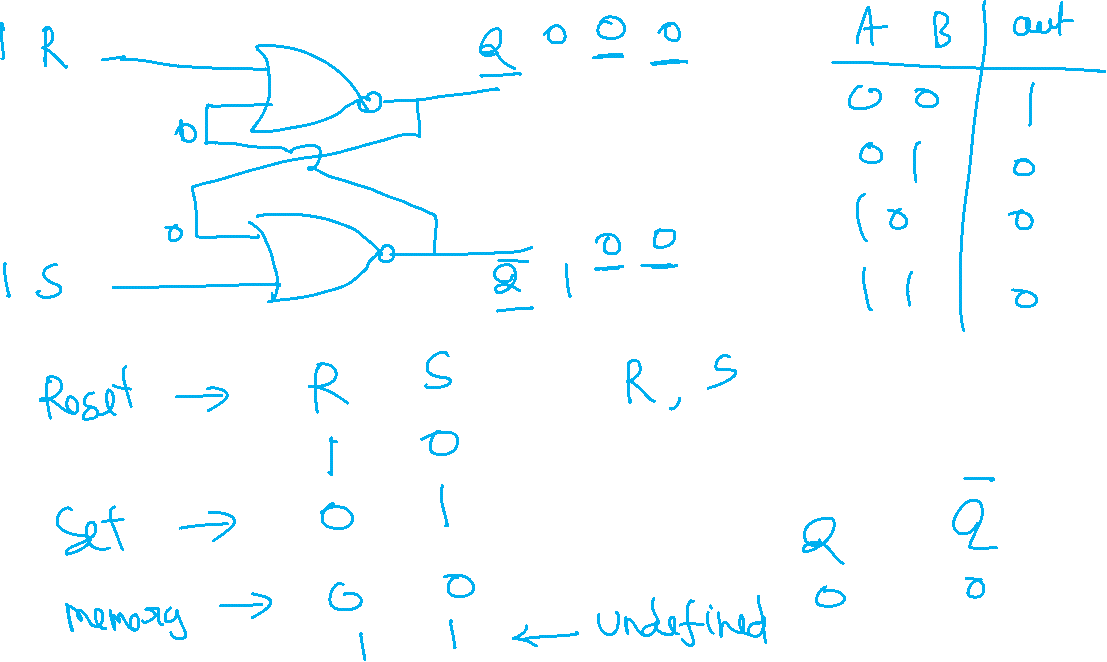 1 R Q 0 0 0
0
0
1 S Q̅ 1 0 0
A B out
0 0 1
0 1 0
1 0 0
1 1 0
Reset → R S R, S
1 0
Set → 0 1
memory → 0 0
1 1 ← undefined
Q Q̅
0 0